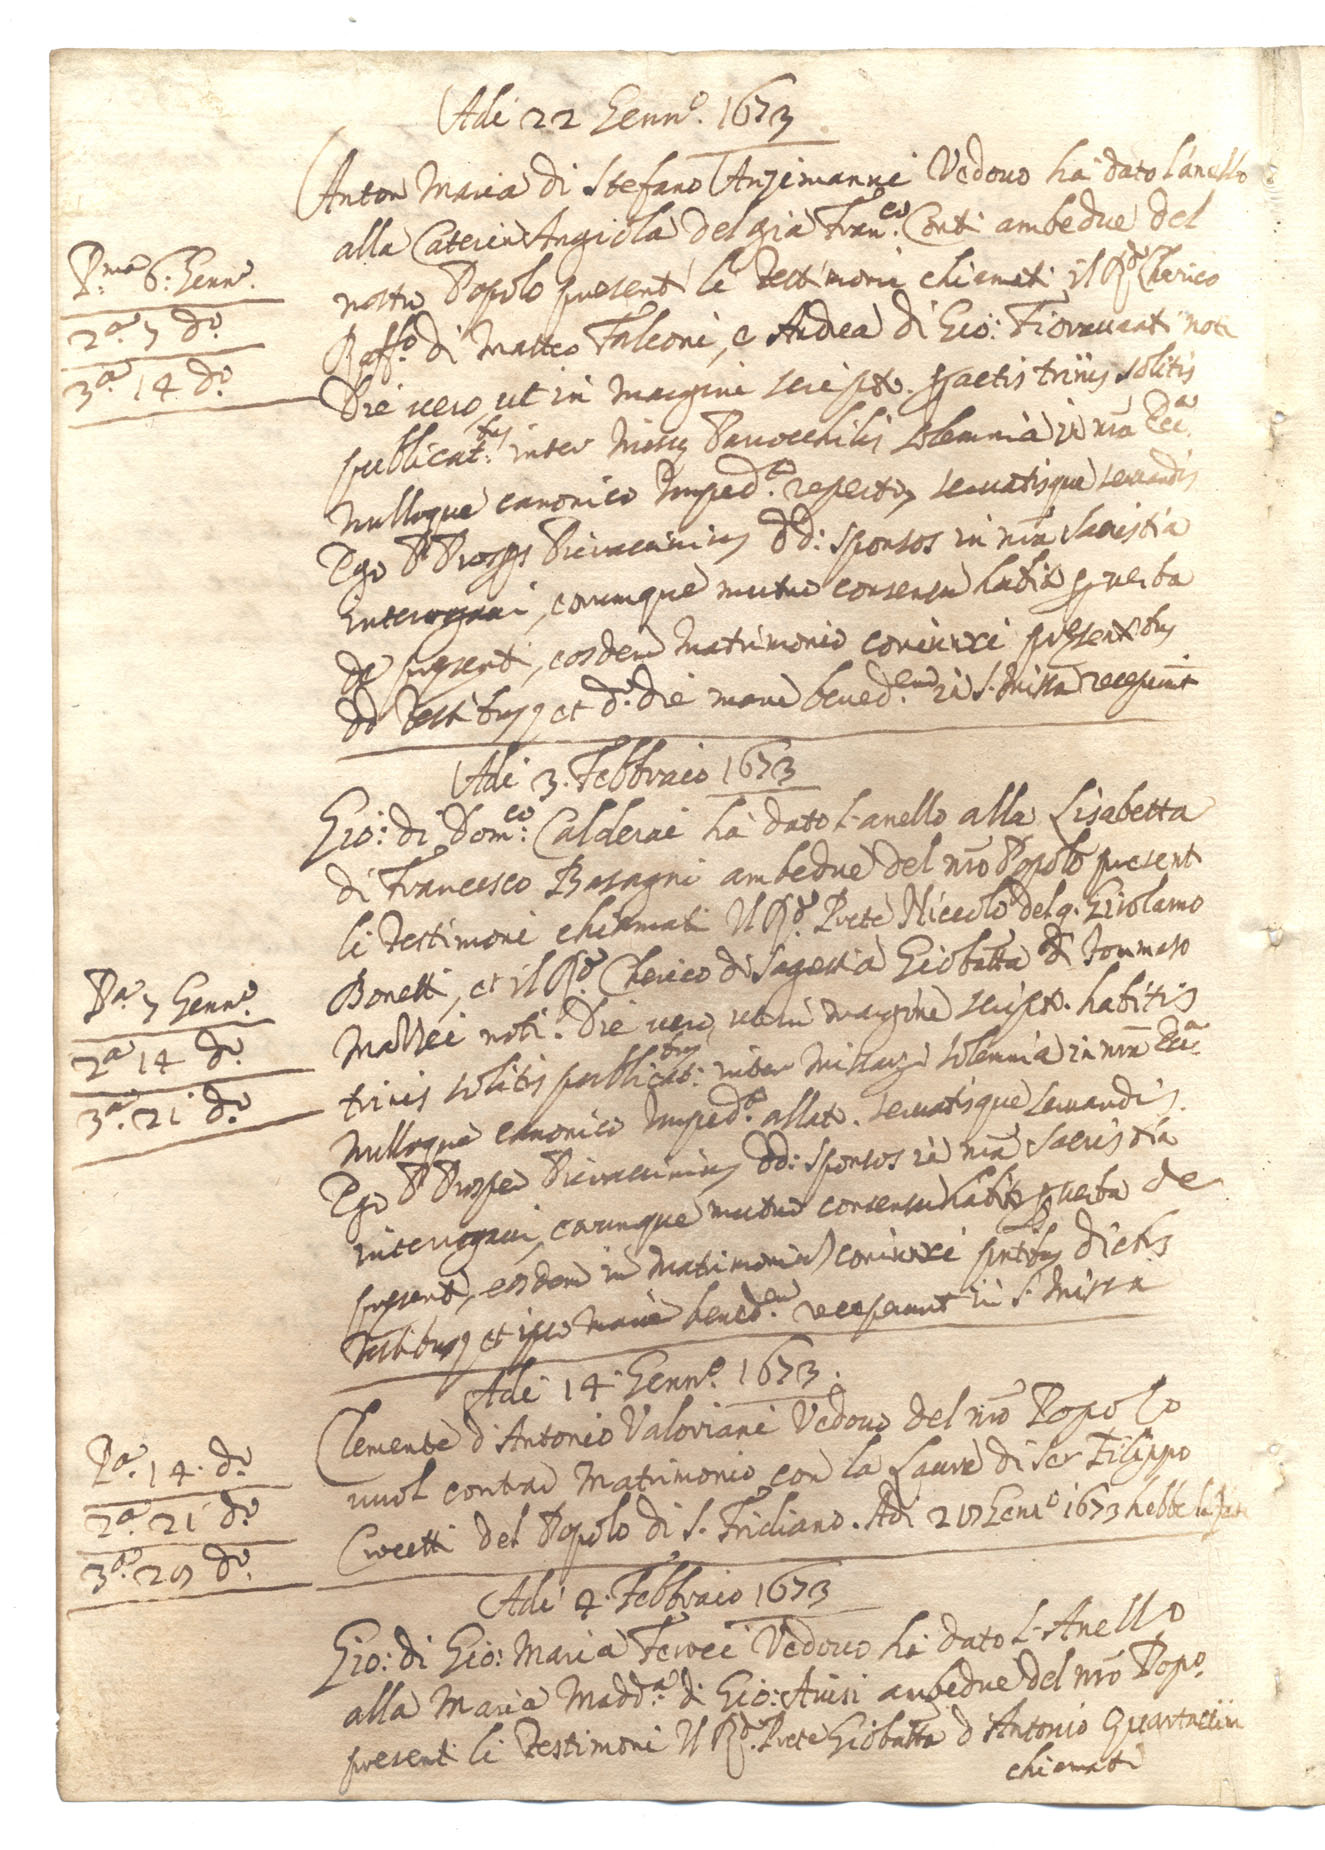 Adi 22 Genn.o 1673
Anton Maria di Stefano Anzimanni Vedovo ha dato l'anello
P.ma 6: Genn.o
2.a 7 d.o
3.a 14 d.o
alla Caterin'Angiola del già Fran.co Conti ambedue del
nostro Popolo presenti li testimoni chiamati il R.do Cherico
Raff.o di Matteo Falconi, e Andrea di Gio: Fioravanti noti
Die vero, ut in margine script.o peractis trinis solitis
publicat:bus inter Missar Parocchilis solemnia in nra Ecc.a
nulloque canonico Imped.to reperto, servatisque servandis
Ego P Prosp Pieraccinius dd: sponsos in nra Sacristia
interrogavi, eorumque mutuo consensu habito p verba
de presenti, eosdem Matrimonio coniunxi presentibus
dd testibus, et d.o die mane bened.em in S. Missa receperunt
Adi 3. Febbraio 1673
Gio: di Dom:co Calderai hà dato l'anello alla Lisabetta
di Francesco Basagni ambedue del nro Popolo presenti
li testimoni chiamati Il R.do Prete Niccolò del q. Girolamo
P.a 7 Genn.o
2.a 14 d.o
3.a 21 d.o
Bonetti, et il R.do Cherico di Sagrestia Giobatta di Tommaso
Mazzei noti. Die vero, ut in margine script.o habitis
trinis solitis publicat:bus inter Missarum solemnia in nra Ecc.a
nulloque canonico Imped.to allato. servatisque servandis.
Ego P Prosper Pieraccinius dd: sponsos in nra Sacristia
interrogavi, eorumque mutuo consensu habito p verba de
presenti, eosdem in Matrimonium coniunxi pntibus dictis
testibus, et ipso mane bened.em receperunt in S. Missa
Adi 14. Genn.o 1673.
Clemente d'Antonio Valoriani Vedovo del nro Popolo
P.a 14. d.o
2.a 21 d.o
3.a 28 d.o
vuol contrar Matrimonio con la Laura di Ser Filippo
Crocetti del Popolo di S. Friliano. Adi 28 Genn.o 1673 hebbe la fede
Adi 4. Febbraio 1673
Gio: di Gio: Maria Ferroci Vedovo hà dato l'Anello
alla Maria Madd.a di Gio: Avisi ambedue del nro Popo.
presenti li testimoni Il R.do Prete Giobatta d'Antonio
chiamati